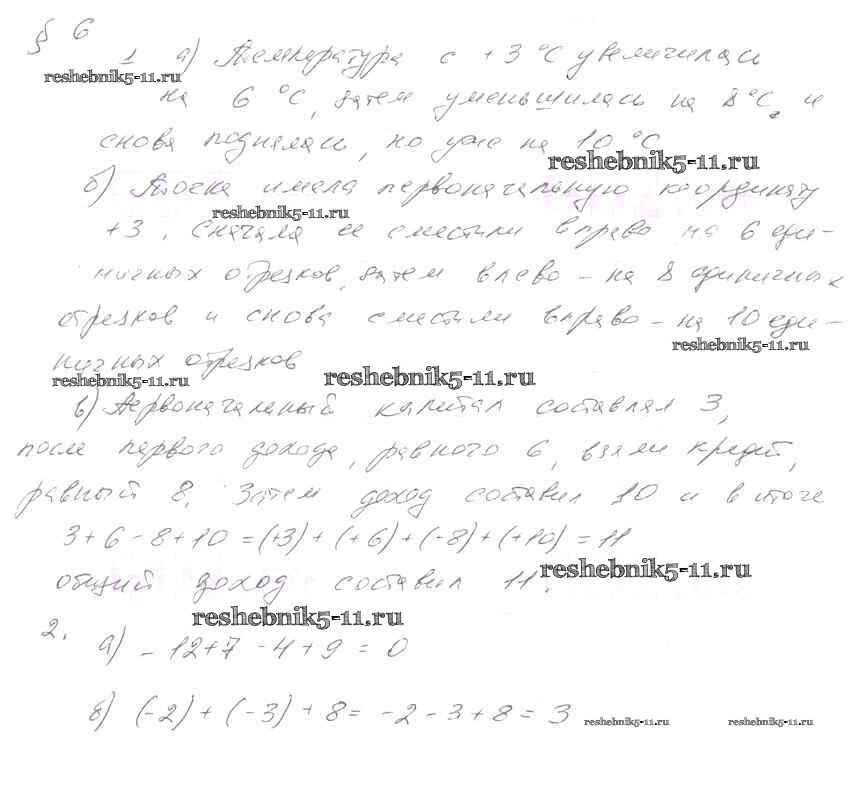 § 6
1 а) Температура с +3 °C увеличилась
reshebnik5-11.ru
на 6 °C, затем уменьшилась на 8 °C, и
снова поднялась, но уже на 10 °C
reshebnik5-11.ru
б) Точка имела первоначальную координату
reshebnik5-11.ru
+3. Сначала ее сместили вправо на 6 еди-
ничных отрезков, затем влево - на 8 единичных
отрезков и снова сместили вправо - на 10 еди-
reshebnik5-11.ru
ничных отрезков
reshebnik5-11.ru reshebnik5-11.ru
в) Первоначальный капитал составлял 3,
после первого дохода, равного 6, взяли кредит,
равный 8. Затем доход составил 10 и в итоге
3 + 6 - 8 + 10 = (+3) + (+6) + (-8) + (+10) = 11
reshebnik5-11.ru
общий доход составил 11.
reshebnik5-11.ru
2. а) - 12 + 7 - 4 + 9 = 0
б) (-2) + (-3) + 8 = -2 - 3 + 8 = 3
reshebnik5-11.ru reshebnik5-11.ru